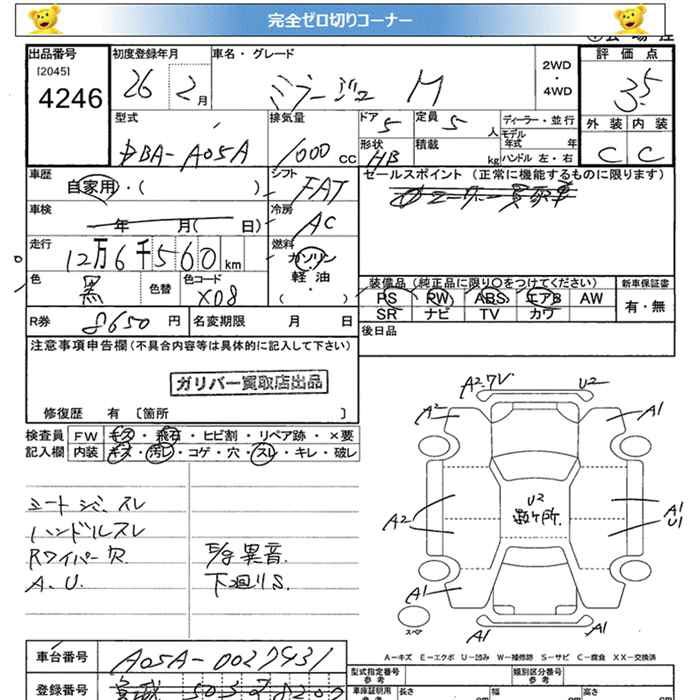 完全ゼロ切りコーナー
出品番号
[2045]
4246
初度登録年月
26 2月
車名・グレード
ミラージュ M
2WD
・
4WD
評価点
3.5
外装 内装
C C
型式
DBA-A05A
排気量
1000 cc
ドア 5
形状 HB
定員 5 人
積載 kg
ディーラー・並行
モデル
年式 年
ハンドル 左・右
車歴
自家用・( )
シフト
FAT
セールスポイント(正常に機能するものに限ります)
車検
年 月( 日)
冷房
AC
走行
12万6千560 km
燃料
ガソリン
軽・油
( ・ )
色
黒
色替
色コード
X08
装備品(純正品に限り○をつけてください)
PS PW ABS エアB AW
SR ナビ TV カワ
新車保証書
有・無
R券 8650円
名変期限 月 日
後日品
注意事項申告欄(不具合内容等は具体的に記入して下さい)
ガリバー買取店出品
修復歴 有 [箇所 ]
検査員
記入欄
FW キズ・飛石・ヒビ割・リペア跡・×要
内装 キズ・汚レ・コゲ・穴・スレ・キレ・破レ
ハンドルスレ
Rワイパー欠
A、U.
異音
下廻りS.
A2.7V U2
A2 A1
U2
数ヶ所.
A2 A1
U1
A1 A1
スペア
A1 A1
A-キズ E-エクボ U-凹み W-補修跡 S-サビ C-腐食 XX-交換済
車台番号
A05A-0027931
登録番号
型式指定番号
参考
類別区分番号
参考
車庫証明用
長さ 幅 高さ